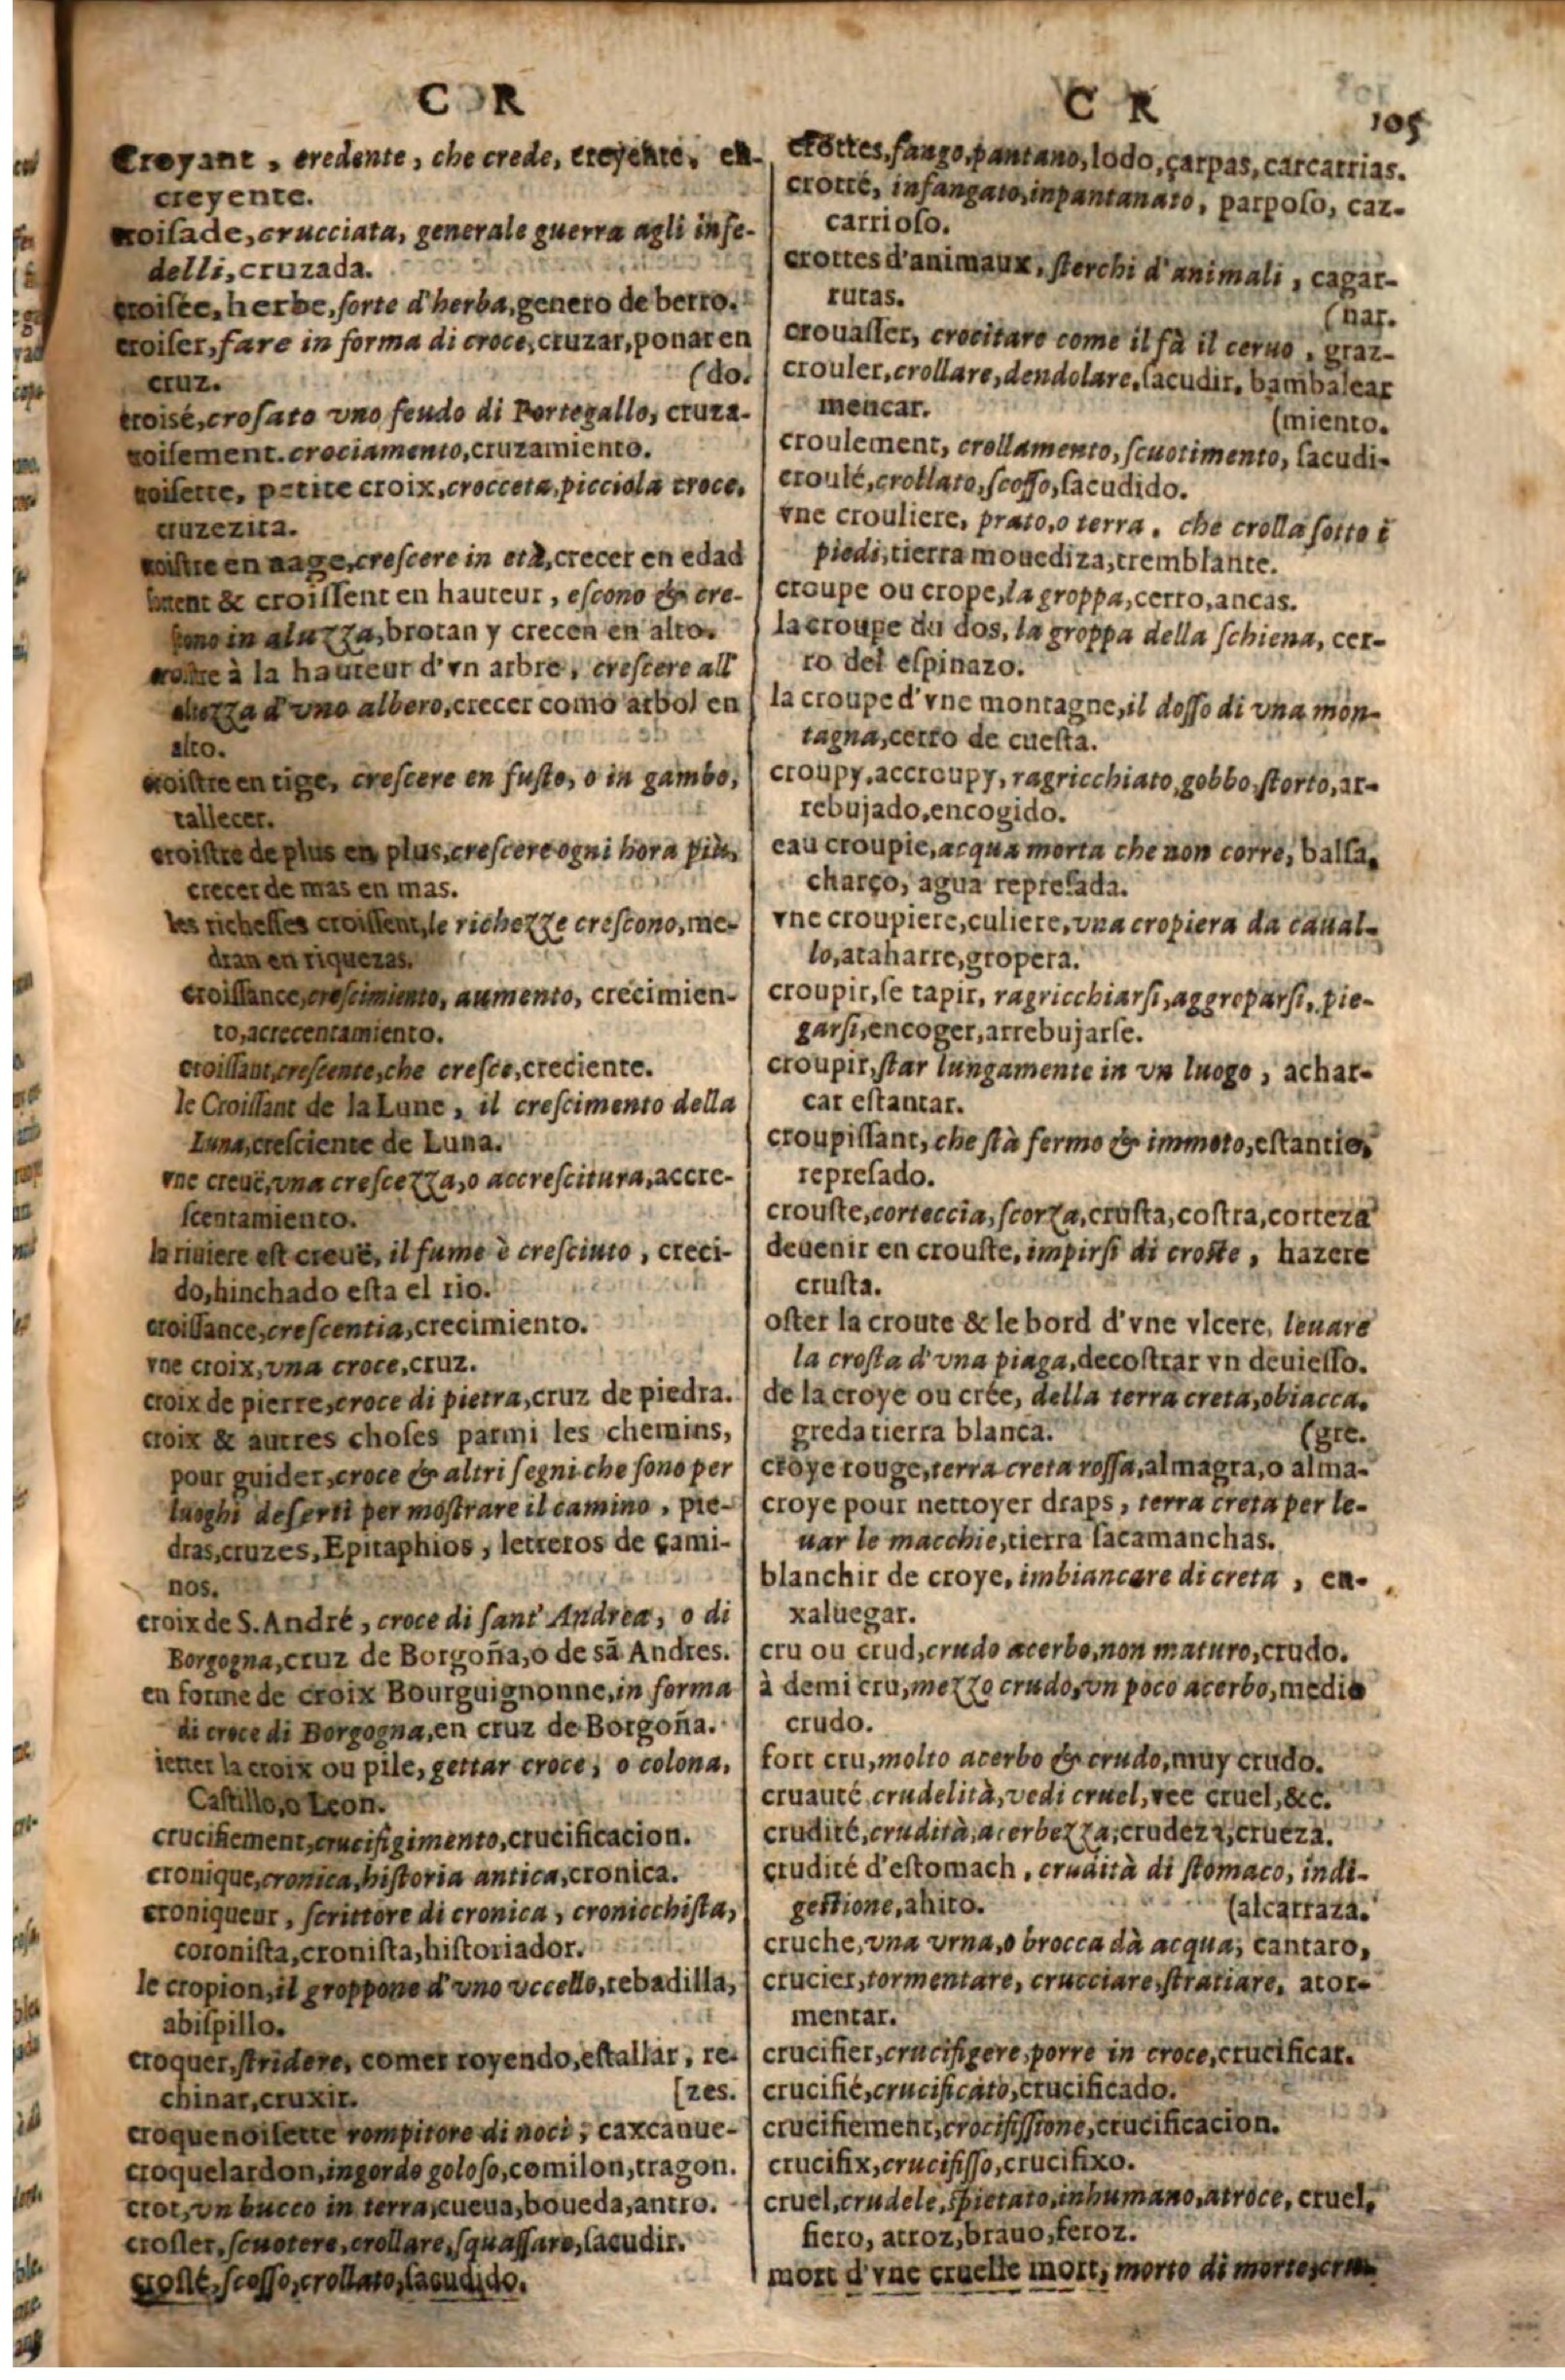 C R
Croyant, credente, che crede, creyente, en-
creyente.
croiſade, crucciata, generale guerra agli infe-
delli, cruzada.
croiſée, herbe, ſorte d'herba, genero de berro.
croiſer, fare in forma di croce, cruzar, ponar en
cruz. (do.
croisé, croſato vno feudo di Portegallo, cruza-
croiſement. crociamento, cruzamiento.
croiſette, petite croix, crocceta, picciola croce,
cruzezita.
croiſtre en aage, creſcere in età, crecer en edad
ſortent & croiſſent en hauteur, eſcono & cre-
ſcono in aluzza, brotan y crecen en alto.
croiſtre à la hauteur d'vn arbre, creſcere all'
altezza d'vno albero, crecer como arbol en
alto.
croiſtre en tige, creſcere en fuſto, o in gambo,
tallecer.
croiſtre de plus en plus, creſcere ogni hora più,
crecer de mas en mas.
les richeſſes croiſſent, le richezze creſcono, me-
dran en riquezas.
croiſſance, creſcimiento, aumento, crecimien-
to, acrecentamiento.
croiſſant, creſcente, che creſce, creciente.
le Croiſſant de la Lune, il creſcimento della
Luna, creſciente de Luna.
vne creuë, vna creſcezza, o accreſcitura, accre-
ſcentamiento.
la riuiere eſt creuë, il fume è creſciuto, creci-
do, hinchado eſta el rio.
croiſſance, creſcentia, crecimiento.
vne croix, vna croce, cruz.
croix de pierre, croce di pietra, cruz de piedra.
croix & autres choſes parmi les chemins,
pour guider, croce & altri ſegni che ſono per
luoghi deſerti per moſtrare il camino, pie-
dras, cruzes, Epitaphios, letreros de çami-
nos.
croix de S. André, croce di ſant' Andrea, o di
Borgogna, cruz de Borgoña, o de sã Andres.
en forme de croix Bourguignonne, in forma
di croce di Borgogna, en cruz de Borgoña.
ietter la croix ou pile, gettar croce, o colona,
Caſtillo, o Leon.
crucifiement, crucifigimento, crucificacion.
cronique, cronica, hiſtoria antica, cronica.
croniqueur, ſcrittore di cronica, cronicchiſta,
coroniſta, croniſta, hiſtoriador.
le cropion, il groppone d'vno vccello, rebadilla,
abiſpillo.
croquer, ſtridere, comer royendo, eſtallar, re-
chinar, cruxir. [zes.
croquenoiſette rompitore di noci, caxcanue-
croquelardon, ingordo goloſo, comilon, tragon.
crot, vn bucco in terra, cueua, boueda, antro.
croſler, ſcuotere, crollare, ſquaſſare, ſacudir.
croſlé, ſcoſſo, crollato, ſacudido.
C R
105
crottes, fango, pantano, lodo, çarpas, carcarrias.
crotté, infangato, inpantanato, parpoſo, caz-
carrioſo.
crottes d'animaux, ſterchi d'animali, cagar-
rutas. (nar.
crouaſſer, crocitare come il fà il ceruo, graz-
crouler, crollare, dendolare, ſacudir, bambalear
mencar. (miento.
croulement, crollamento, ſcuotimento, ſacudi-
croulé, crollato, ſcoſſo, ſacudido.
vne crouliere, prato, o terra, che crolla ſotto i
piedi, tierra mouediza, tremblante.
croupe ou crope, la groppa, cerro, ancas.
la croupe du dos, la groppa della ſchiena, cer-
ro del eſpinazo.
la croupe d'vne montagne, il doſſo di vna mon-
tagna, cerro de cueſta.
croupy, accroupy, ragricchiato, gobbo, ſtorto, ar-
rebujado, encogido.
eau croupie, acqua morta che non corre, balſa,
charço, agua repreſada.
vne croupiere, culiere, vna cropiera da caual-
lo, ataharre, gropera.
croupir, ſe tapir, ragricchiarſi, aggroparſi, pie-
garſi, encoger, arrebujarſe.
croupir, ſtar lungamente in vn luogo, achar-
car eſtantar.
croupiſſant, che ſtà fermo & immoto, eſtantio,
repreſado.
crouſte, corteccia, ſcorza, cruſta, coſtra, corteza
deuenir en crouſte, impirſi di croſte, hazere
cruſta.
oſter la croute & le bord d'vne vlcere, leuare
la croſta d'vna piaga, decoſtrar vn deuieſſo.
de la croye ou crée, della terra creta, obiacca.
greda tierra blanca. (gre.
croye rouge, terra creta roſſa, almagra, o alma-
croye pour nettoyer draps, terra creta per le-
uar le macchie, tierra ſacamanchas.
blanchir de croye, imbiancare di creta, en-
xaluegar.
cru ou crud, crudo acerbo, non maturo, crudo.
à demi cru, mezzo crudo, vn poco acerbo, medio
crudo.
fort cru, molto acerbo & crudo, muy crudo.
cruauté, crudelità, vedi cruel, vee cruel, &c.
crudité, crudità, acerbezza, crudeza, crueza.
crudité d'eſtomach, crudità di ſtomaco, indi-
geſtione, ahito. (alcarraza.
cruche, vna vrna, o brocca dà acqua, cantaro,
crucier, tormentare, crucciare, ſtratiare, ator-
mentar.
crucifier, crucifigere, porre in croce, crucificar.
crucifié, crucificato, crucificado.
crucifiement, crocifiſſione, crucificacion.
crucifix, crucifiſſo, crucifixo.
cruel, crudele, ſpietato, inhumano, atroce, cruel,
fiero, atroz, brauo, feroz.
mort d'vne cruelle mort, morto di morte, cru-